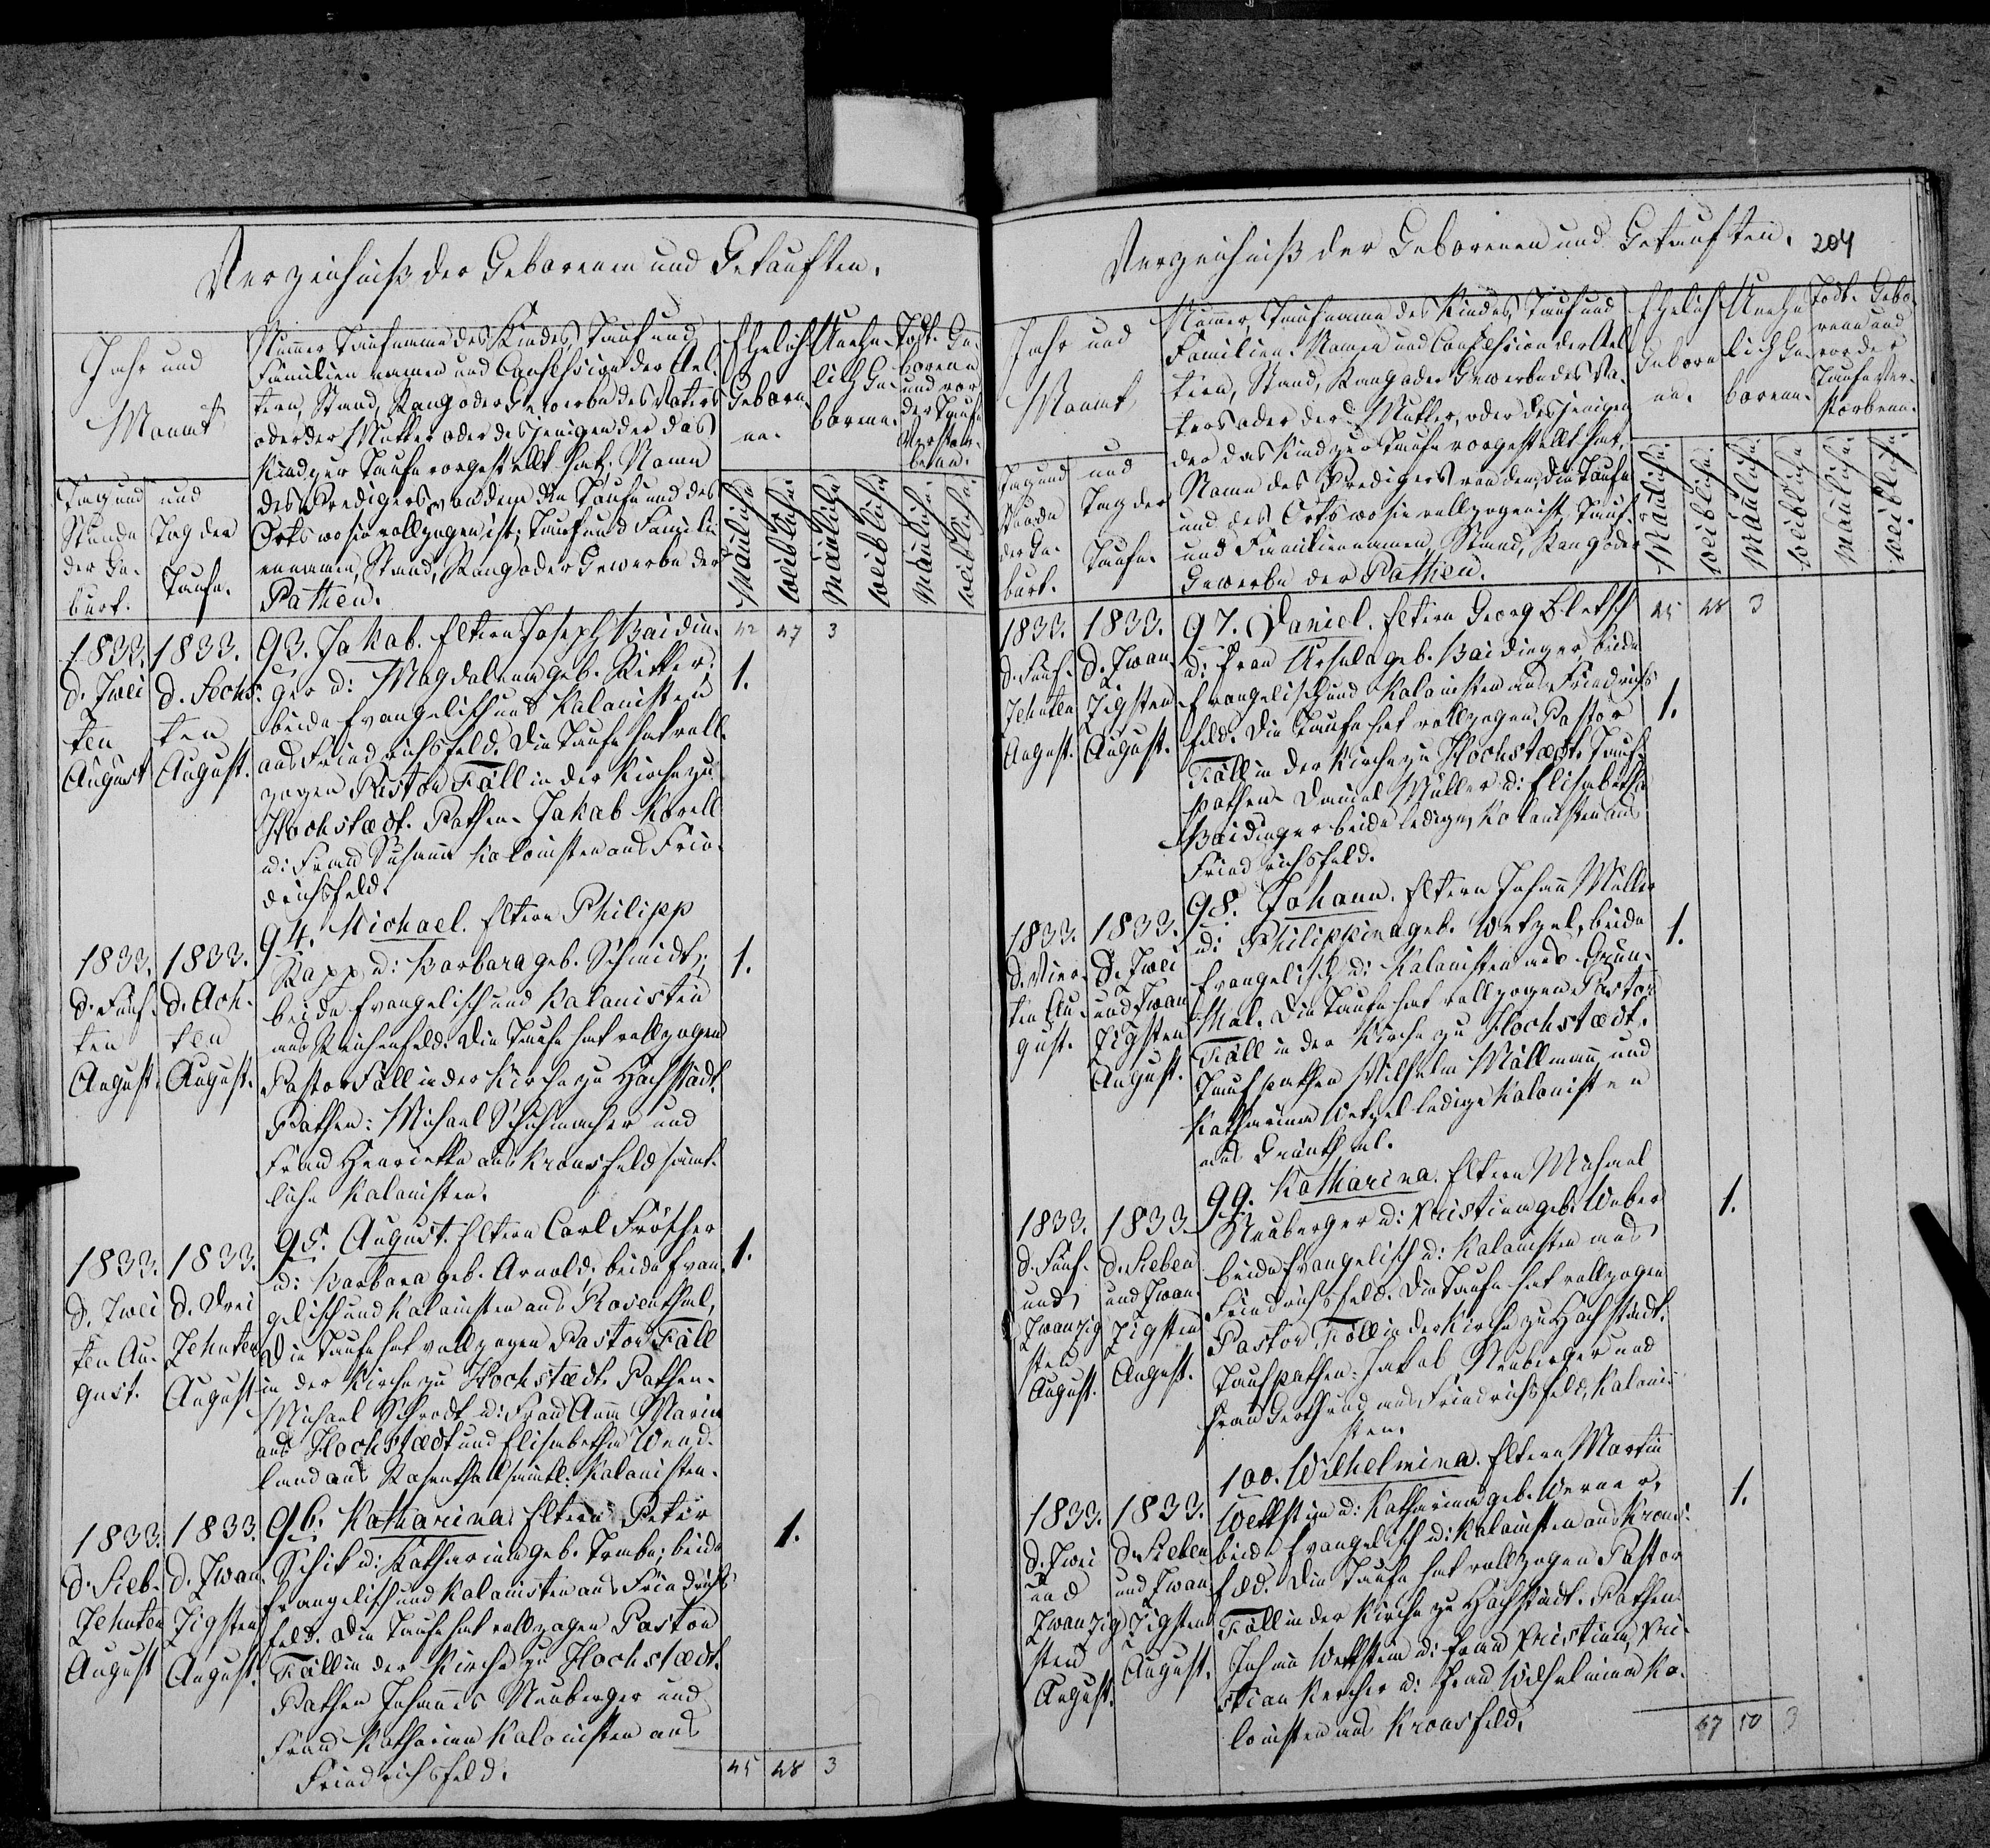 Verzeichniß der Geborenen und Getauften.
Jahr und
Monat
Tag und
Stunde
der Ge-
burt.
und
Tag der
Taufe.
Nummer Taufname des Kindes, Tauf und
Familien namen und Confession der Ael-
tern, Stand, Rang oder Gewerbe des Vaters
oder der Mutter oder desjenigen der das
Kind zur Taufe vorgestellt hat. Name
des Predigers von dem die Taufe und des
Orts wo sie vollzogen ist; Tauf und Famili-
ennamen, Stand, Rang oder Gewerbe der
Pathen.
Ehelich
Gebore-
ne.
Unehe-
lich Ge-
borene.
Todt-Ge-
borene
und vor
der Taufe
Verstor-
bene.
Mänliche
weibliche
Mänliche
weibliche
Mänliche
weibliche
42 47 3
1833.
d. Zwei
ten
August
1833.
d. Sechs-
ten
August.
93. Jakob. Eltern Joseph Baidin-
ger u: Magdalena geb. Ritter;
beide Evangelisch und Kalonisten
aus Friedrichsfeld. Die Taufe hat voll-
zogen Pastor Föll in der Kirche zu
Hochstædt. Pathen- Jakob Korell
u: Frau Susanna Kolonisten aus Frie-
drichsfeld.
1.
1833.
d. Fünf-
ten
August.
1833.
d. Ach-
ten
August.
94. Michael. Eltern Philipp
Rapp u: Barbara geb. Schmidt;
beide Evangelisch und Kalonisten
aus Reichenfeld. Die Taufe hat vollzogen
Pastor Föll in der Kirche zu Hochstädt
Pathen: Michael Schuhmacher und
Frau Henrietta aus Kronsfeld sämt-
liche Kalonisten.
1.
1833.
d. Zwei
ten Au-
gust.
1833.
d. Drei
Zehnten
August
95. August. Eltern Carl Fröscher
u: Barbara geb. Arnold. beide Evan-
gelisch und Kalonisten aus Rosenthal,
Die Taufe hat vollzogen Pastor Föll
in der Kirche zu Hochstædt. Pathen-
Michael Schrodt u: Frau Anna Maria
aus Hochstædt und Elisabetha Wend-
land aus Rosenthal sämtl: Kalonisten.
1.
1833.
d. Sieb-
Zehnten
August
1833.
d. Zwan
Zigsten
August.
96. Katharina. Eltern Peter
Schik u: Katharina geb. Traba; beide
Evangelisch und Kalonisten aus Friedrichs
feld. Die Taufe hat vollzogen Pastor
Föll in der Kirche zu Hochstædt.
Pathen Johannes Neuberger und
Frau Katharina Kalonisten aus
Friedrichsfeld.
1.
45 48 3
Verzeichniß der Geborenen und Getauften.
204
Jahr und
Monat
Tag und
Stunde
der Ge-
burt.
und
Tag der
Taufe.
Nummer, Taufname des Kindes, Tauf und
Familien-Namen und Confession der Ael-
tern, Stand, Rang oder Gewerbe des Va-
ters oder der Mutter, oder desjenigen
der das Kind zur Taufe vorgestellt hat.
Name des Predigers von dem, die Taufe
und des Orts wo sie vollzogen ist, Tauf-
und Familiennamen, Stand, Rang oder
Gewerbe der Pathen.
Ehelich
Gebore-
ne.
Unehe-
lich Ge-
borene.
Todt-Gebo-
rene und
vor der
Taufe Ver-
storbene.
Mänliche
weibliche
Mänliche
weibliche
Mänliche
weibliche
45 48 3
1833.
d. Fünf-
Zehnten
August.
1833.
d. Zwan
Zigsten
August.
97. Daniel. Eltern Georg Bletsch
u: Frau Ursula geb. Baidinger beide
Evangelisch und Kalonisten aus Friedrichs
feld. Die Taufe hat vollzogen Pastor
Föll in der Kirche zu Hochstædt. Tauf-
pathen- Daniel Müller u: Elisabetha
Baidinger beide ledige, Kolonisten aus
Friedrichsfeld.
1.
1833.
d. Vier-
ten Au-
gust.
1833.
d. Zwei
und Zwan
Zigsten
August.
98. Johann. Eltern Johann Müller
u: Philippina geb. Wetzel, beide
Evangelisch u: Kalonisten aus Grün-
thal. Die Taufe hat vollzogen Pastor
Föll in der Kirche zu Hochstædt.
Taufpathen Wilhelm Mollmann und
Katharina Wetzel ledige Kalonisten
aus Grünthal.
1.
1833.
d. Fünf-
und
Zwanzig
sten
August.
1833.
d. Sieben
und Zwan-
Zigsten
August.
99. Katharina. Eltern Michael
Neuberger u: Kristina geb. Weber
beide Evangelisch u: Kalonisten aus
Friedrichsfeld. Die Taufe hat vollzogen
Pastor Föll in der Kirche zu Hochstädt.
Taufpathen: Jakob Neuberger und
Frau Gerthrud aus Friedrichsfeld, Kaloni-
sten.
1.
1833.
d. Zwei
und
Zwanzig
sten
August.
1833.
d. Sieben
und Zwan
Zigsten
August.
100. Wilhelmina. Eltern Martin
Wettstein u: Katharina geb. Werner,
beide Evangelisch u: Kalonisten aus Krons-
feld. Die Taufe hat vollzogen Pastor
Föll in der Kirche zu Hochstädt. Pathen
Johann Wettstein u: Frau Kristina, Kri-
stian Kercher u: Frau Wilhelmina Ko-
lonisten aus Kronsfeld.
1.
47 50 3